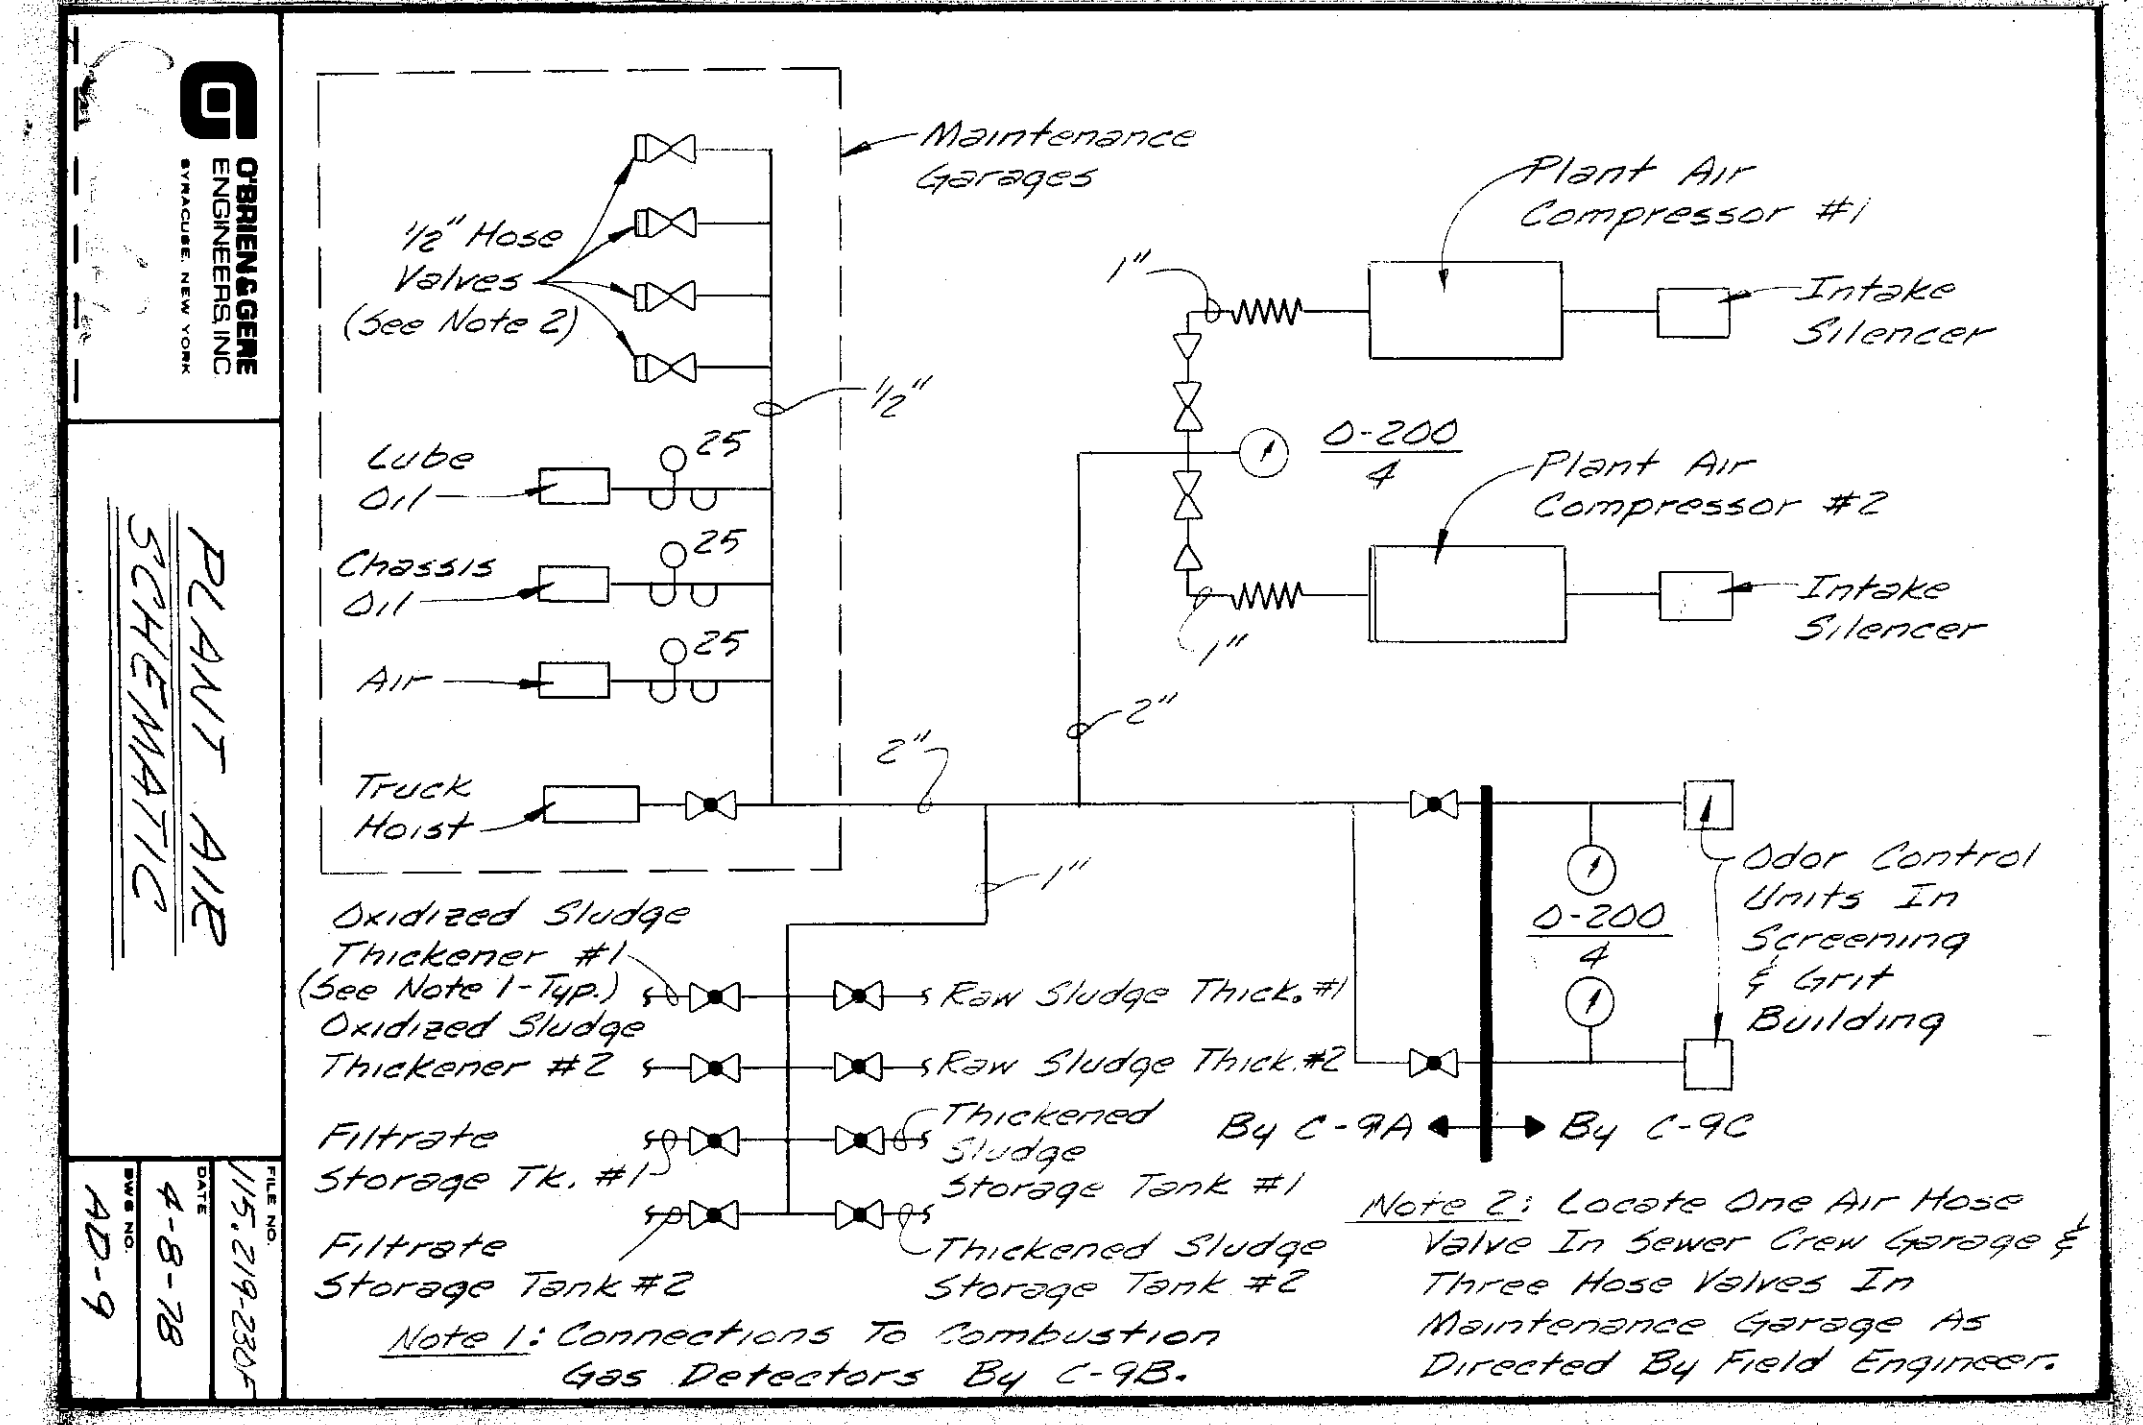 O'BRIEN & GERE
ENGINEERS, INC.
SYRACUSE, NEW YORK
PLANT AIR
SCHEMATIC
FILE NO.
115.219-230F
DATE
4-8-78
DWG NO.
AD-9
Maintenance
Garages
1/2" Hose
Valves
(See Note 2)
1/2"
Lube
Oil
25
Chassis
Oil
25
Air
25
Truck
Hoist
2"
2"
1"
Plant Air
Compressor #1
1"
Intake
Silencer
0-200
4
Plant Air
Compressor #2
1"
Intake
Silencer
Odor Control
Units In
Screening
& Grit
Building
0-200
4
By C-9A
By C-9C
Oxidized Sludge
Thickener #1
(See Note 1-Typ.)
Raw Sludge Thick. #1
Oxidized Sludge
Thickener #2
Raw Sludge Thick. #2
Filtrate
Storage Tk. #1
Thickened
Sludge
Storage Tank #1
Filtrate
Storage Tank #2
Thickened Sludge
Storage Tank #2
Note 1: Connections To Combustion
Gas Detectors By C-9B.
Note 2: Locate One Air Hose
Valve In Sewer Crew Garage &
Three Hose Valves In
Maintenance Garage As
Directed By Field Engineer.